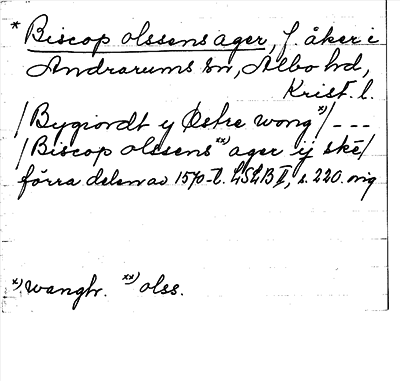 * Biscop olssens ager, f. åker i
Andrarums sn, Albo hd,
Krist. l.
/Bygiordt y Østre wong x)/ ---
/Biscop olssens xx) ager ij ske/
förra delen av 1570-t. LSLB II, s. 220. orig
x) wangh. xx) olss.